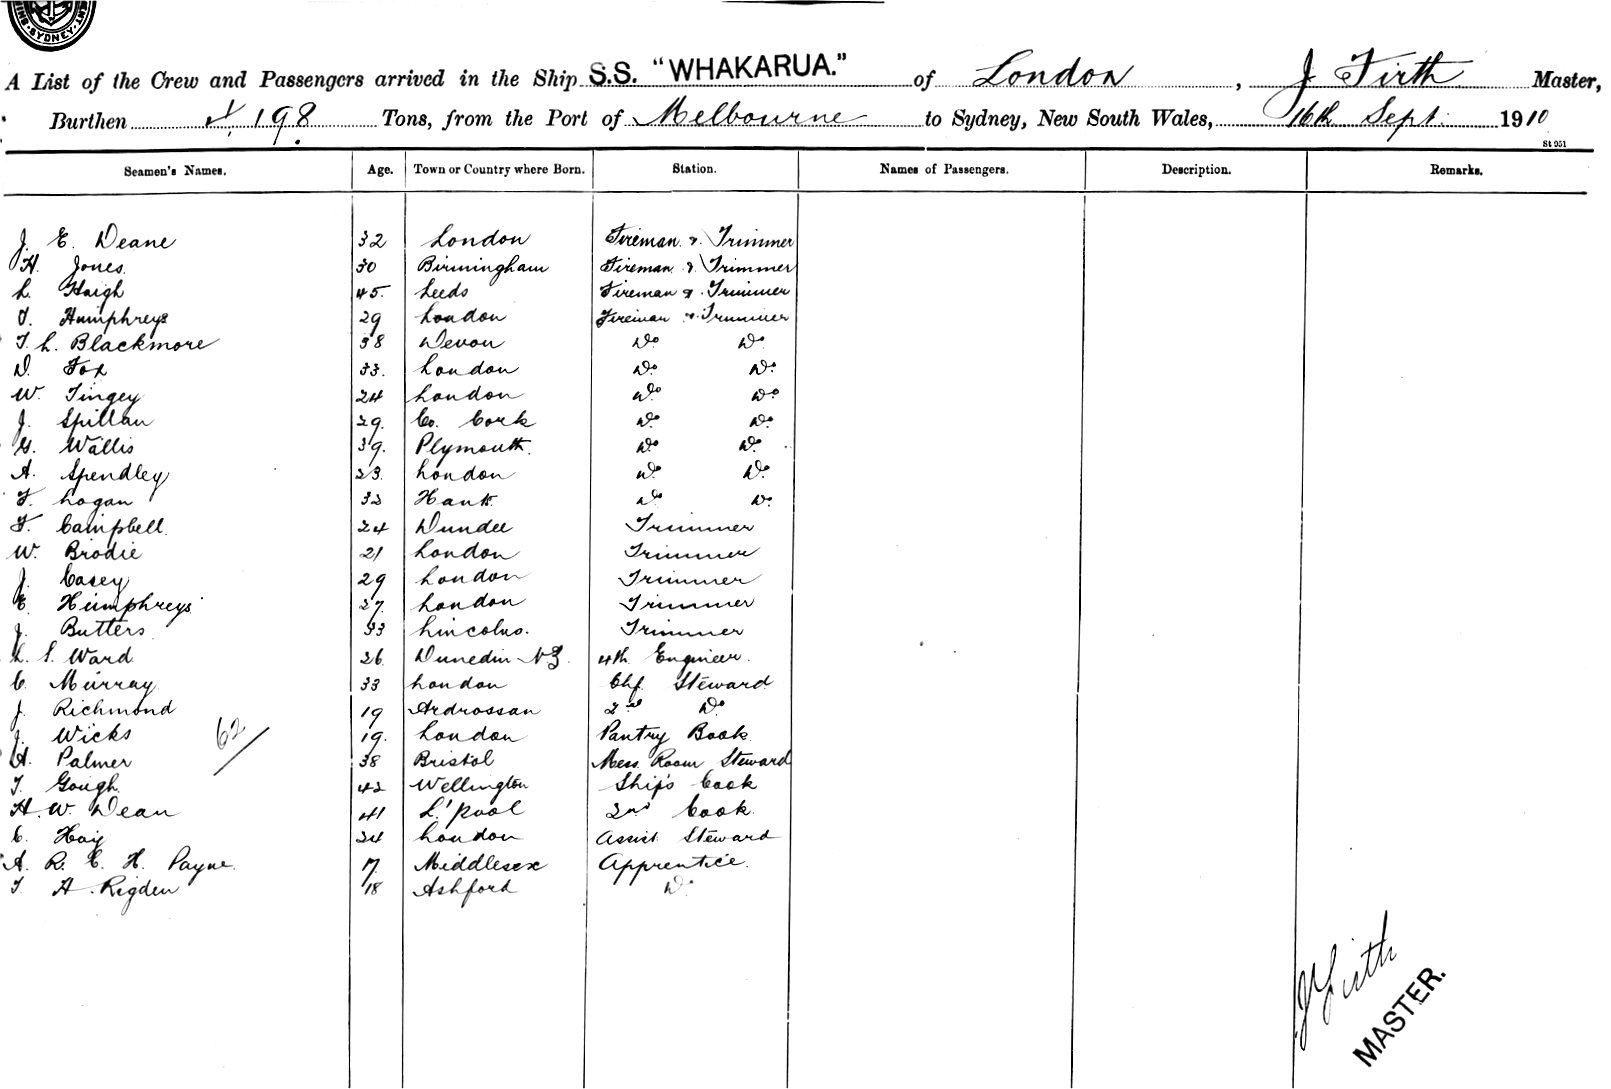 SYDNEY
A List of the Crew and Passengers arrived in the Ship S.S. "WHAKARUA." of London, J Firth Master,
Burthen 4,198 Tons, from the Port of Melbourne to Sydney, New South Wales, 16th Sept. 1910
St 951
Seamen's Names. Age. Town or Country where Born. Station. Names of Passengers. Description. Remarks.
J. E. Deane 32 London Fireman & Trimmer
H. Jones. 30 Birmingham Fireman & Trimmer
L. Haigh 45. Leeds Fireman & Trimmer
T. Humphreys 29 London Fireman & Trimmer
T. L. Blackmore 38 Devon Do Do
D. Fox 33. London Do Do
W. Tingey 24 London Do Do
J. Spillan 29. Co. Cork Do Do
G. Wallis 39. Plymouth. Do Do
A. Spendley 23. London Do Do
F. Logan 32 Hants. Do Do
F. Campbell 24 Dundee Trimmer
W. Brodie 21 London Trimmer
J. Casey 29 London Trimmer
E. Humphreys 27. London Trimmer
J. Butters 33 Lincolns. Trimmer
L. S. Ward 26 Dunedin NZ. 4th Engineer.
C. Murray 33 London Chf. Steward
J. Richmond 19 Ardrossan 2nd Do
J. Wicks 19. London Pantry Book
62
A. Palmer 38 Bristol Mess Room Steward
T. Gough. 42 Wellington Ship's Cook
H. W. Dean 41 L'pool 2nd Cook
C. Hay 24 London Assist. Steward
A. R. C. H. Payne. 17. Middlesex Apprentice.
T. A. Rigden 18 Ashford Do
J Firth
MASTER.